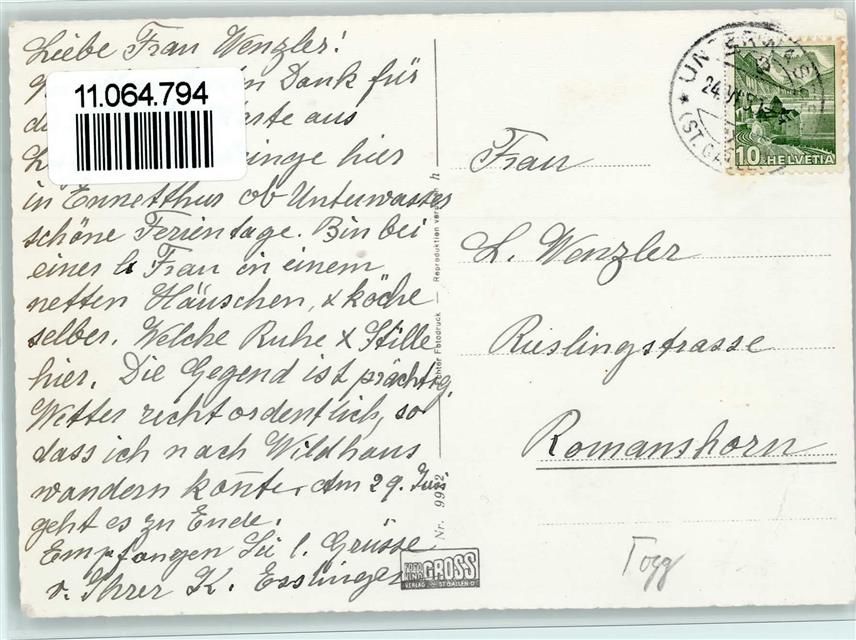 Liebe Frau Wenzler!
Dank für
aus
hier
in Ennetthur ob Unterwasser
schöne Ferientage. Bin bei
einer l. Frau in einem
netten Häuschen, & köche
selber. Welche Ruhe & Stille
hier. Die Gegend ist prächtig,
Wetter recht ordentlich, so
dass ich nach Wildhaus
wandern konn̄te. Am 29. Juni
geht es zu Ende.
Empfangen Sie l. Grüsse
v. Ihrer K. Esslinger
11.064.794
Echter Fotodruck — Reproduktion verboten h
Nr. 9952
FOTO GROSS
VERLAG ST. GALLEN
UNTERWASSER
24.VI.
(ST. GALLEN)
10 HELVETIA
Frau
L. Wenzler
Rieslingstrasse
Romanshorn
Togg